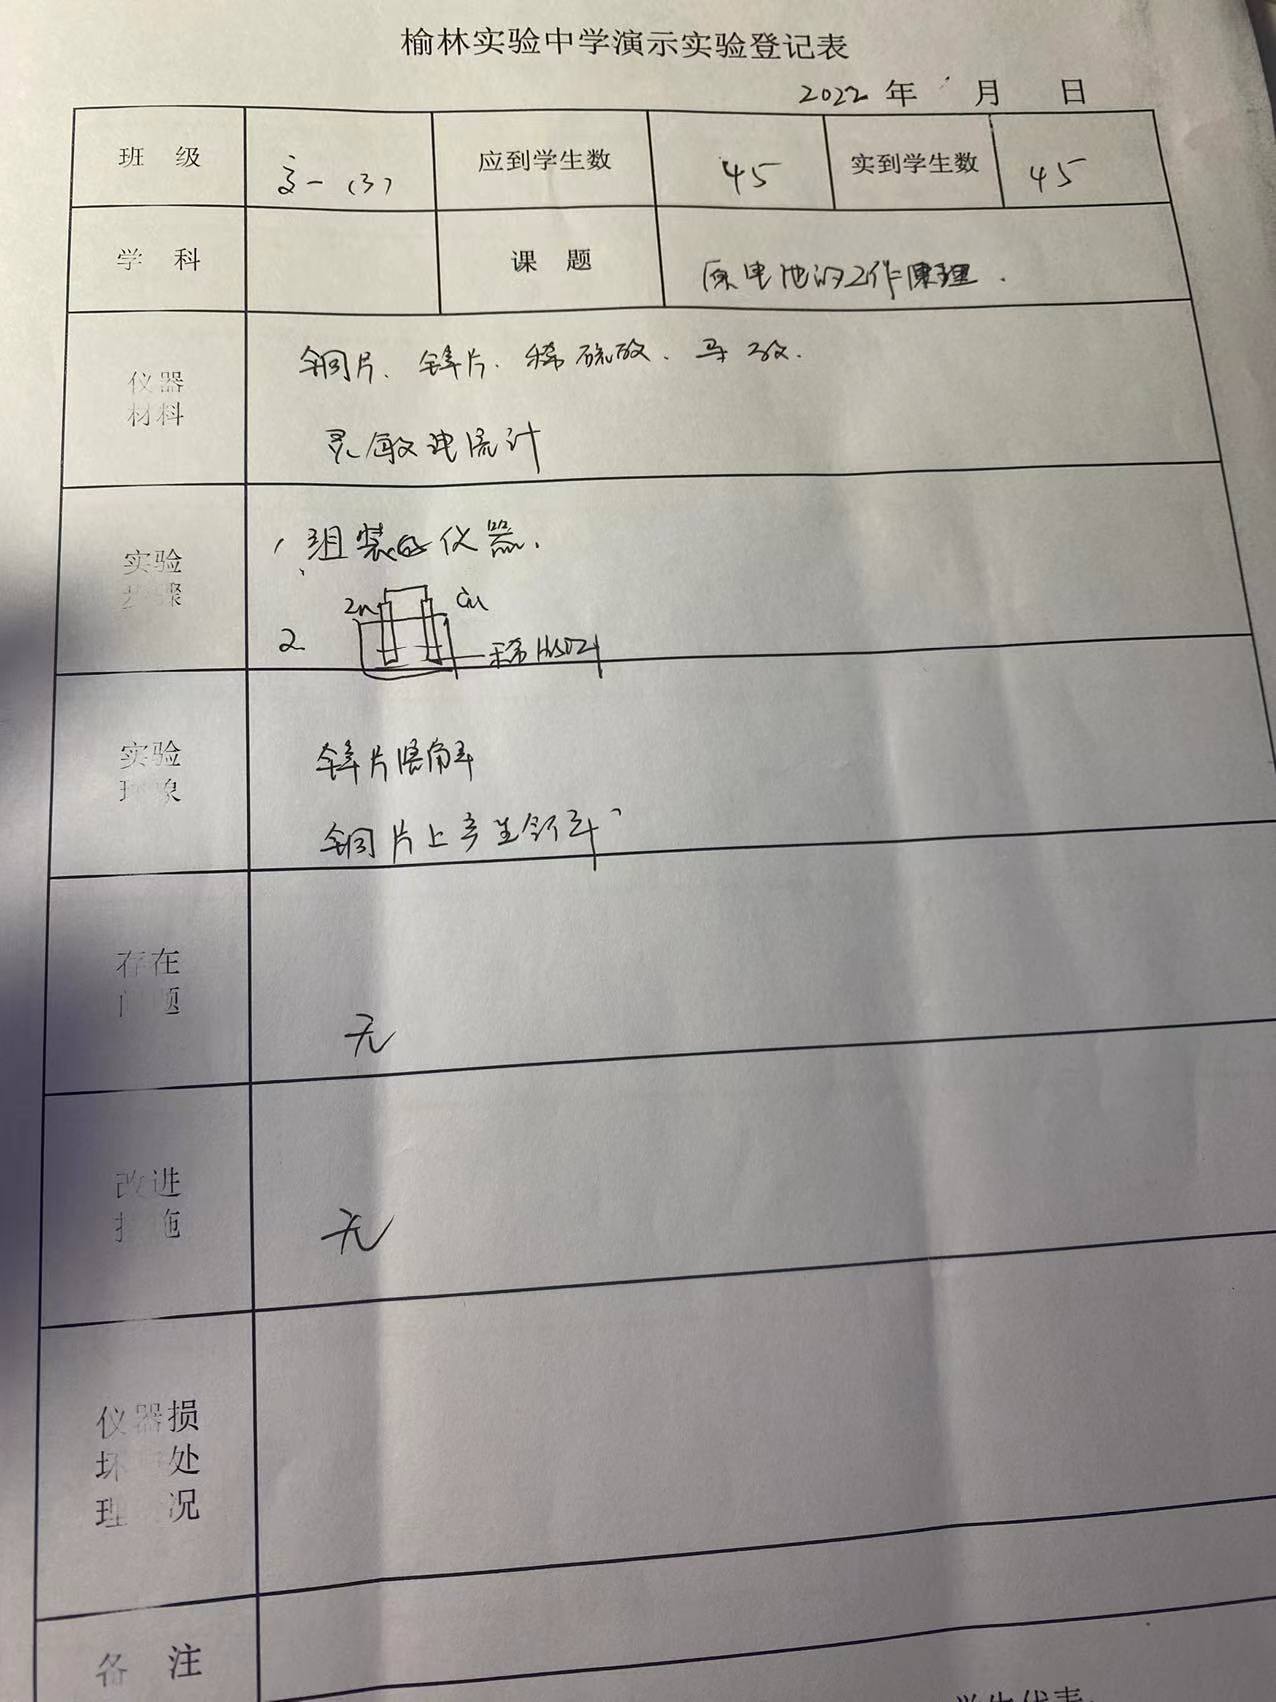 榆林实验中学演示实验登记表
2022 年 月 日
班 级 高一(3) 应到学生数 45 实到学生数 45
学 科 课 题 原电池的工作原理.
仪器
材料
铜片、锌片、稀硫酸、导线.
灵敏电流计
实验
步骤
1、组装好仪器.
2
Zn Cu
稀H2SO4
实验
现象
锌片溶解
铜片上产生气泡
存在
问题
无
改进
措施
无
仪器损
坏 处
理 况
备 注
学生代表